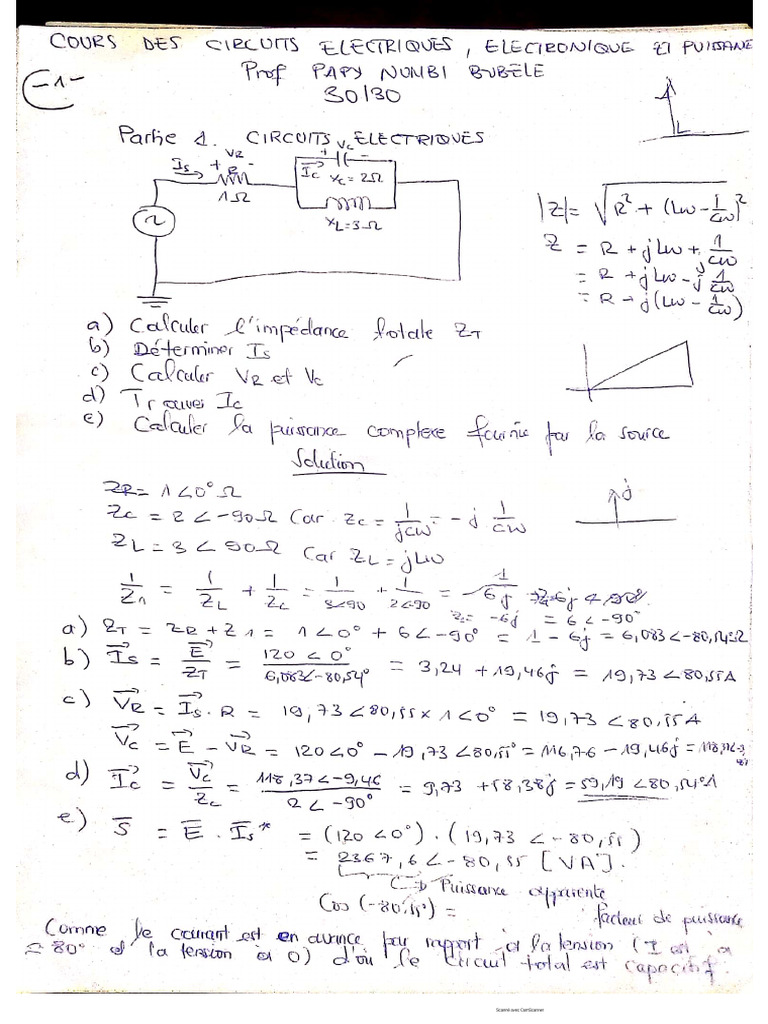 COURS DES CIRCUITS ELECTRIQUES, ELECTRONIQUE ET PUISSANE
-1-
Prof PAPY NUMBI BUBELE
30/30
Partie 1. CIRCUITS ELECTRIQUES
Is + VR -
R
1Ω
+ Vc -
Ic
Xc=2Ω
XL=3Ω
|Z|= √R² + (Lω - 1/cω)²
Z = R + jLω + 1/jcω
= R + jLω - j 1/cω
= R + j(Lω - 1/cω)
a) Calculer l'impédance totale ZT
b) Déterminer Is
c) Calculer VR et Vc
d) Trouver Ic
e) Calculer la puissance complexe fournie par la source
Solution
ZR = 1<0° Ω
Zc = 2<-90Ω Car Zc = 1/jcω = -j 1/cω
j
ZL = 3<90Ω Car ZL = jLω
1/Z1 = 1/ZL + 1/Zc = 1/3<90 + 1/2<-90 = - 1/6j
Z1 = -6j = 6<-90°
a) ZT = ZR + Z1 = 1<0° + 6<-90° = 1 - 6j = 6,083<-80,54°Ω
b) Is = E/ZT = 120<0°/6,083<-80,54° = 3,24 + 19,46j = 19,73<80,55A
c) VR = Is.R = 19,73<80,55 x 1<0° = 19,73<80,55A
Vc = E - VR = 120<0° - 19,73<80,55° = 116,76 - 19,46j = 118,37<-9,46
d) Ic = Vc/Zc = 118,37<-9,46/2<-90° = 9,73 + 58,38j = 59,19<80,54°A
e) S = E.Is* = (120<0°).(19,73<-80,55)
= 2367,6<-80,55 [VA].
Puissance apparente
Cos(-80,55°) =
facteur de puissance
Comme le courant est en avance par rapport à la tension (I est à
≈80° et la tension à 0) d'où le circuit total est capacitif
Scanné avec CamScanner